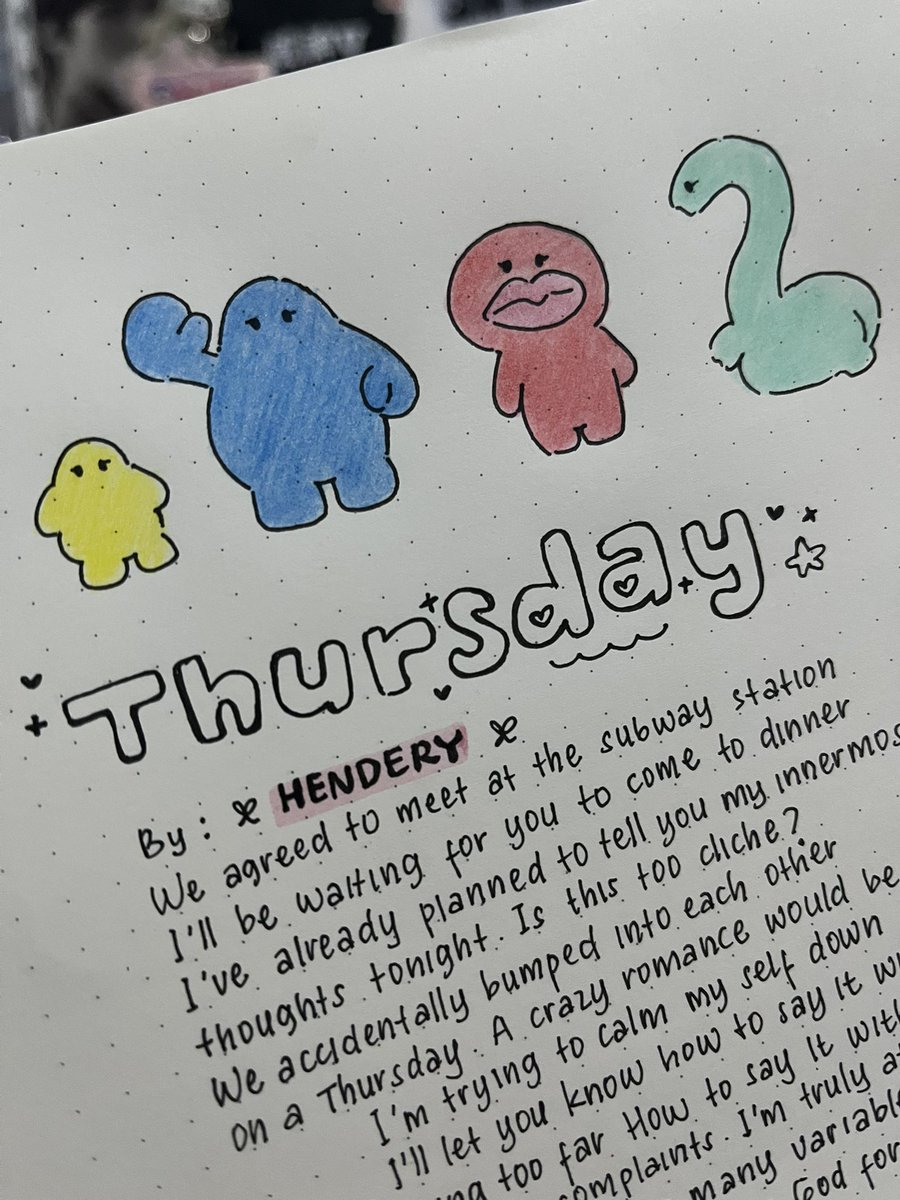 Thursday
By: HENDERY
We agreed to meet at the subway station
I'll be waiting for you to come to dinner
I've already planned to tell you my innermos
thoughts tonight. Is this too cliche?
We accidentally bumped into each other
on a Thursday. A crazy romance would be
I'm trying to calm my self down
I'll let you know how to say it
too far How to say it
complaints. I'm truly
many
God for